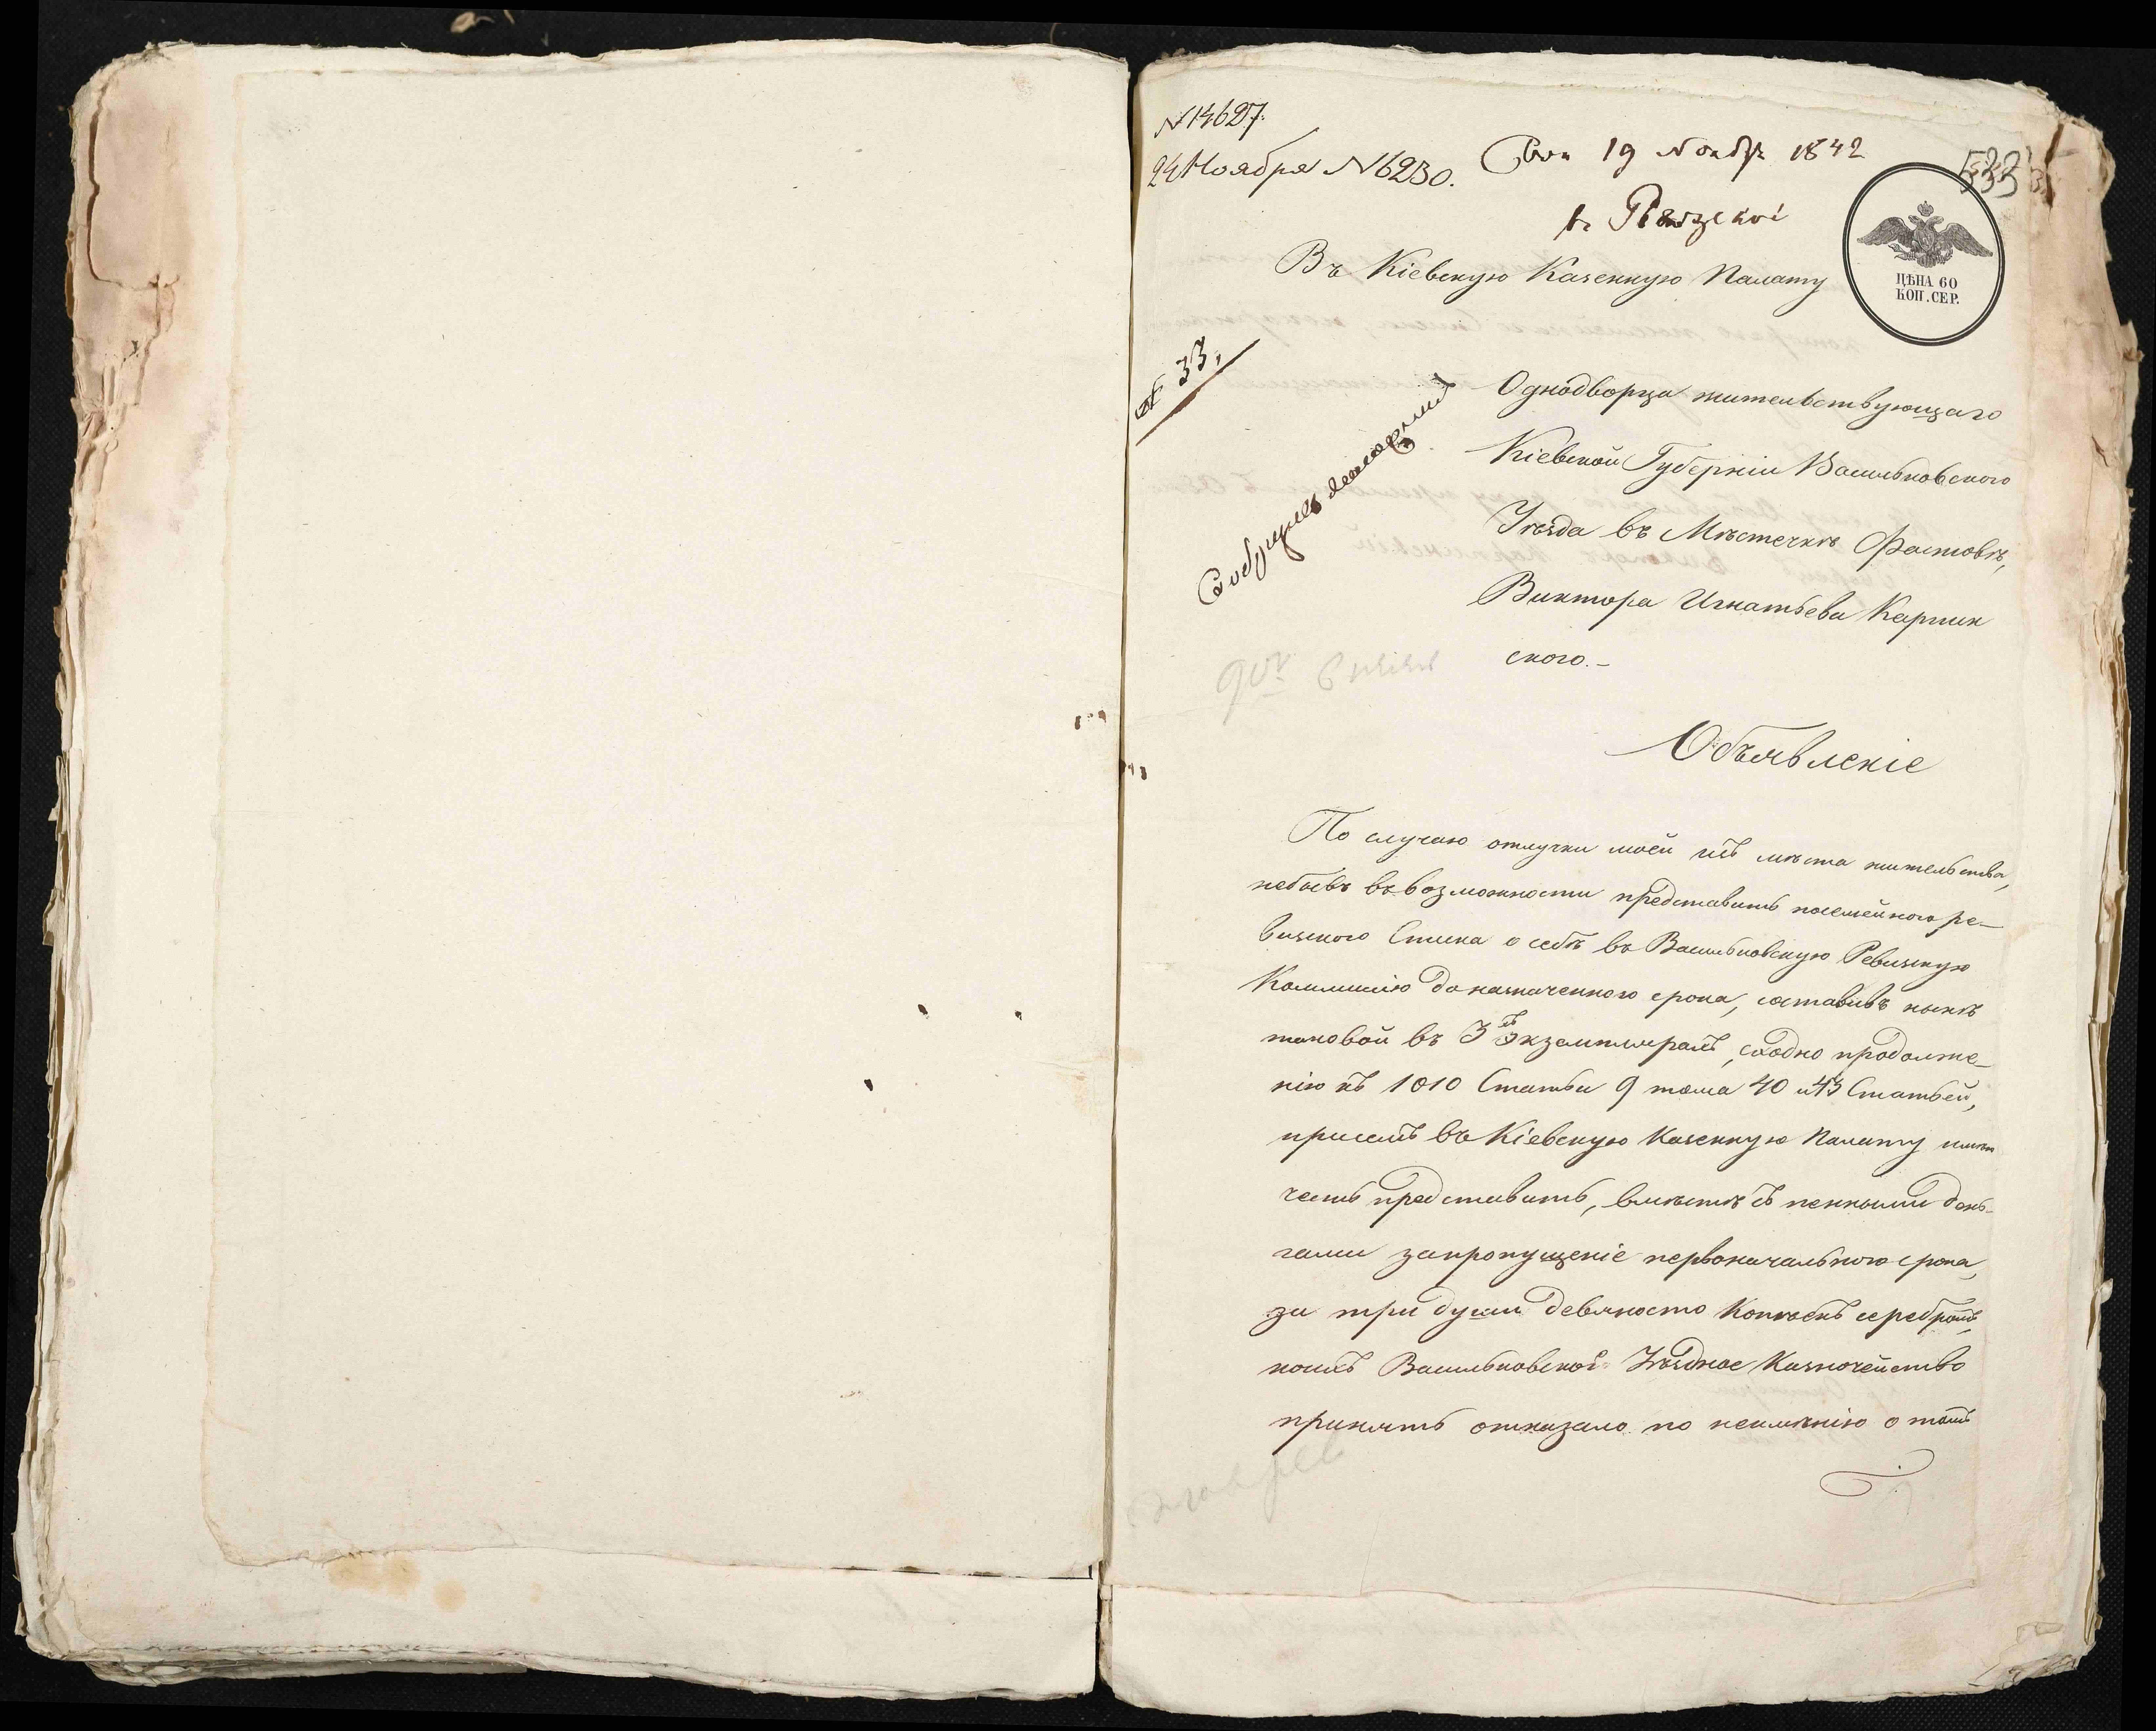 N 14627.
24 Ноября N 6230.
19 Ноябр 1842
533
в Ревизской
ЦѢНА 60
КОП. СЕР.
Въ Кіевскую Казенную Палату
№ 33.
Однодворца жительствующаго
Кіевской Губерніи Васильковского
Уѣзда въ Мѣстечкѣ Фастовѣ,
Виктора Игнатьева Карпин
ского.-
Объявленіе
По случаю отлучки моей изъ мѣста жительства,
небывъ въ возможности представить посемейного ре-
визского Списка о себѣ въ Васильковскую Ревизскую
Коммисію до назначенного срока, составивъ нынѣ
таковой въ 3хъ экземплярахъ, сходно продолже-
нію къ 1010 Статьи 9 тома 40 и 43 Статьей,
при семъ въ Кіевскую Казенную Палату имѣю
честь представить, вмѣстѣ съ пенными день-
гами запропущеніе первоначального срока,
за три души девяносто Копѣекъ серебромъ,
коихъ Васильковское Уѣздное Казначейство
принять отказало по неимѣнію о томъ